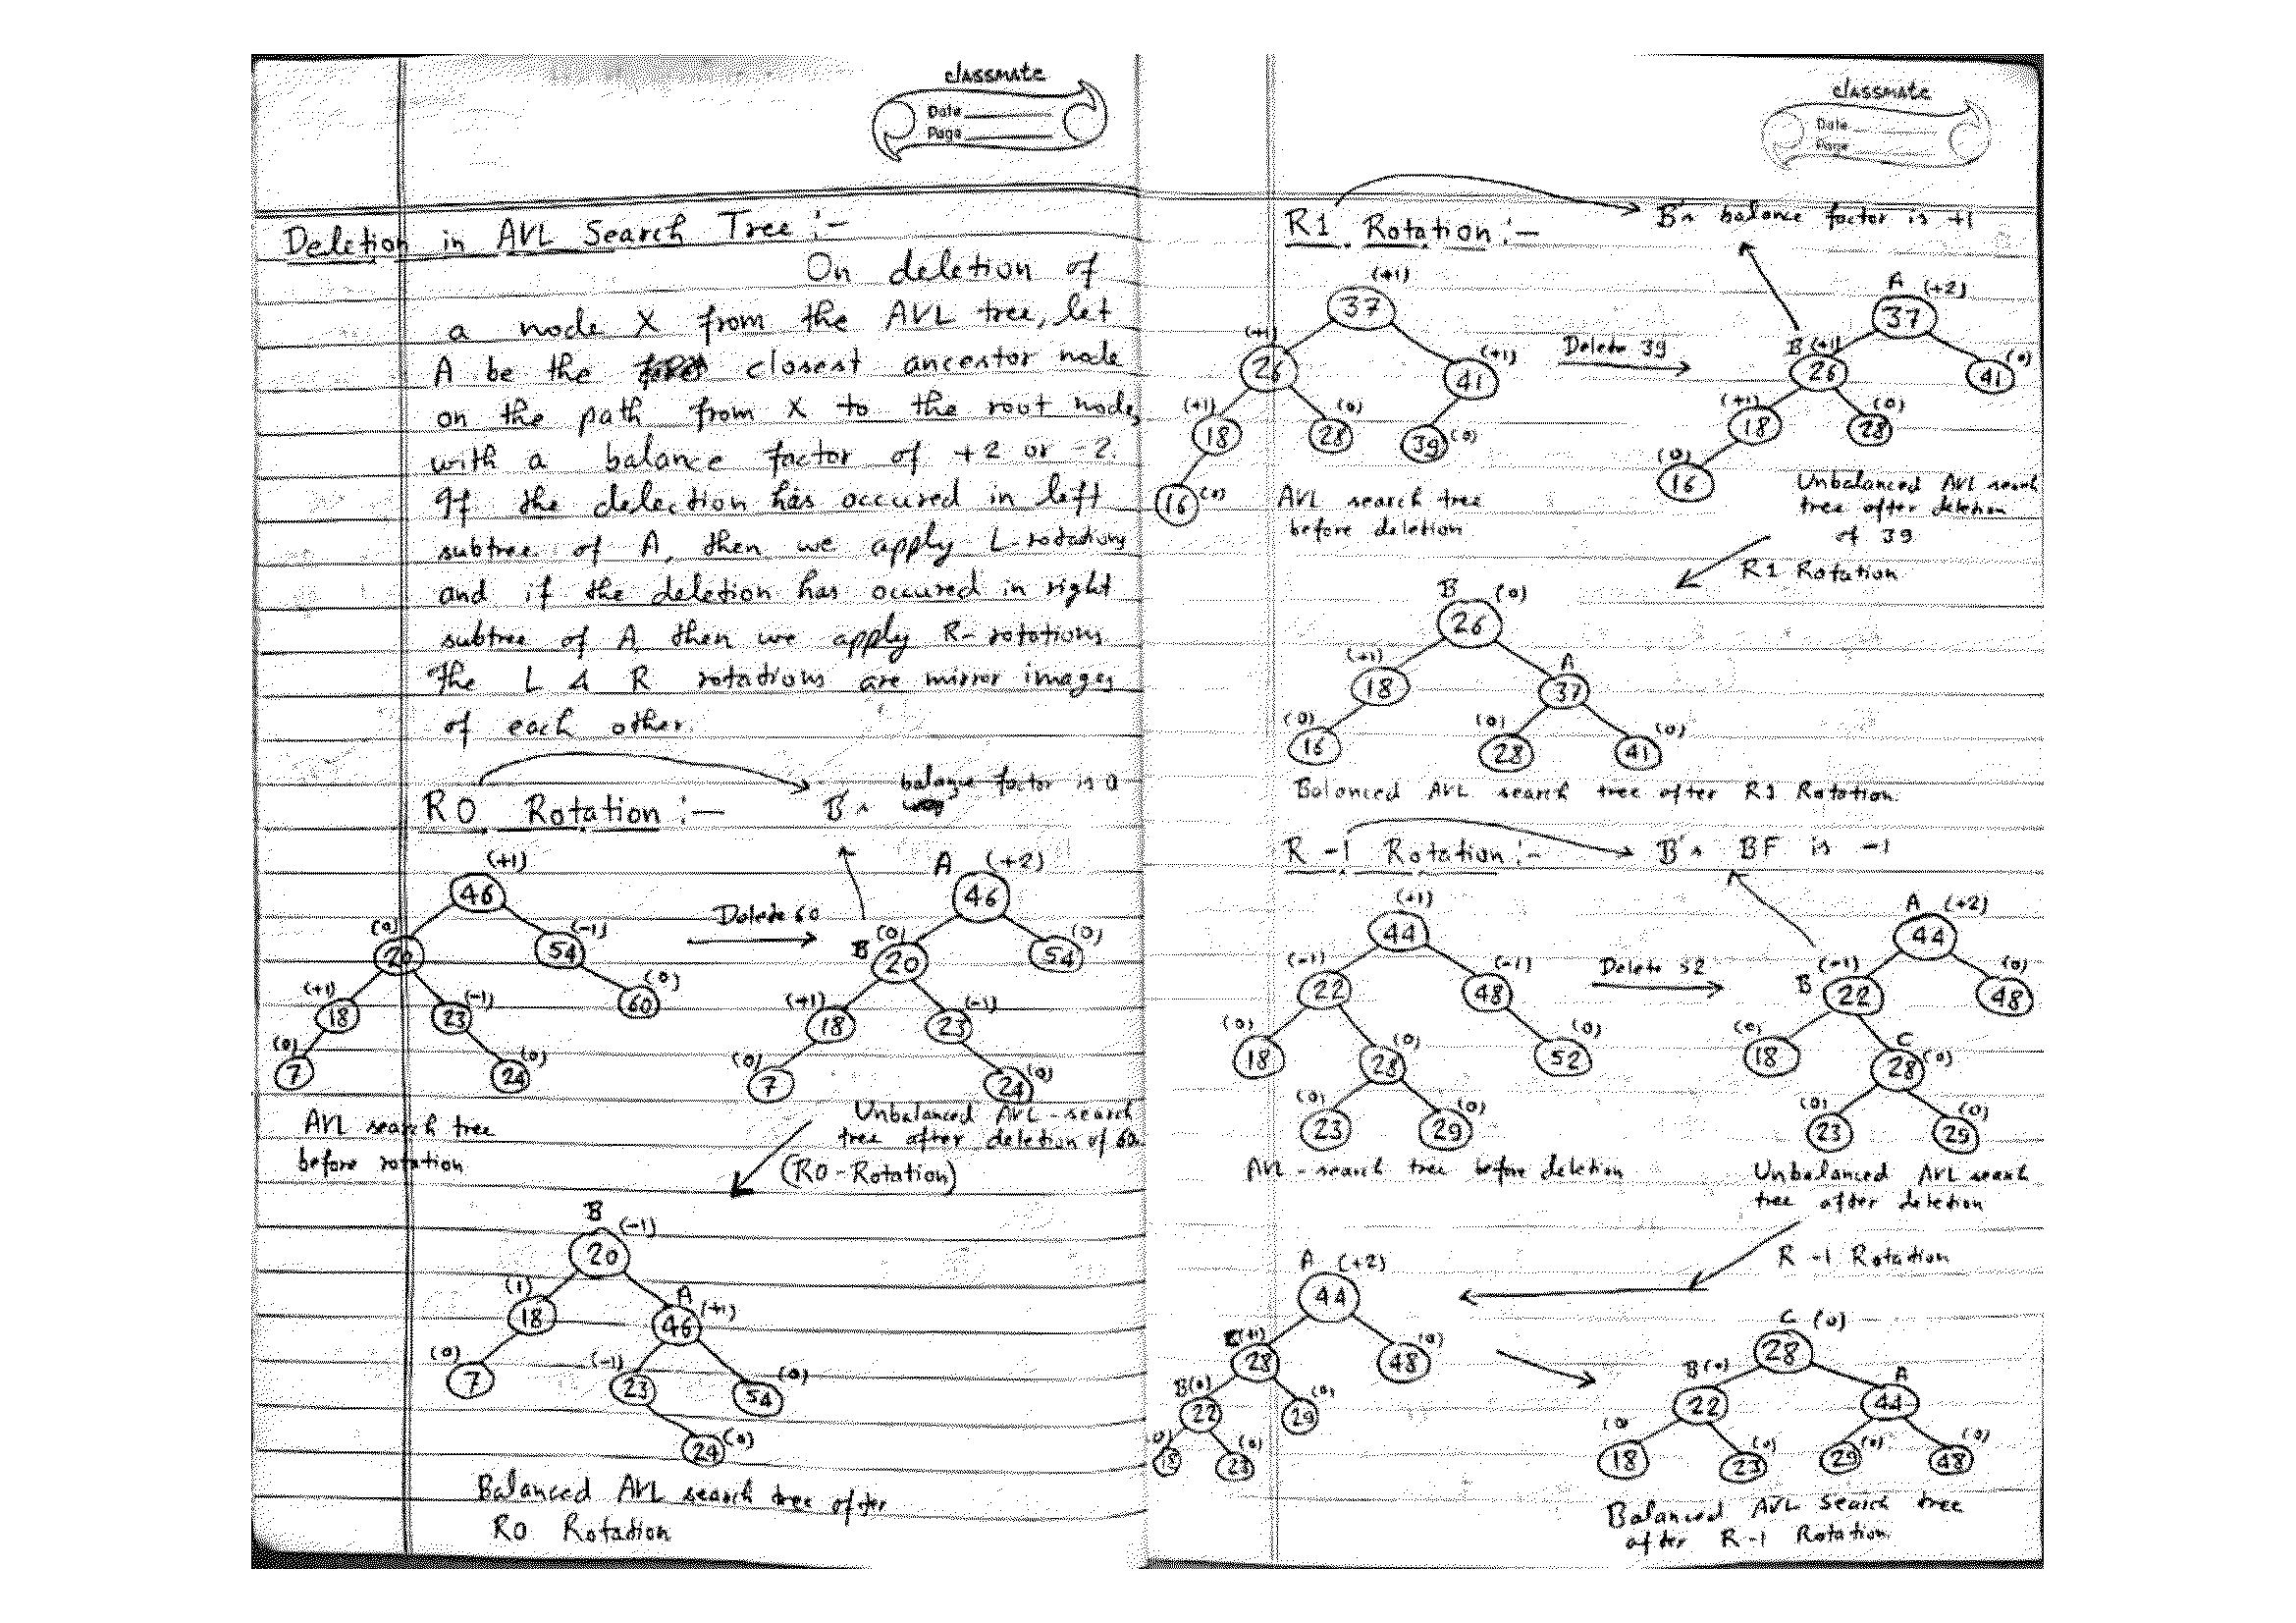 classmate
Date
Page
Deletion in AVL Search Tree :-
On deletion of
a node X from the AVL tree, let
A be the closest ancestor node
on the path from X to the root node,
with a balance factor of +2 or -2.
If the delection has occured in left
subtree of A, then we apply L-rotations
and if the deletion has occured in right
subtree of A then we apply R-rotations
The L & R rotations are mirror images
of each other.
R0 Rotation :-
B's balance factor is 0
(+1)
46
(0) (-1)
20 54
(+1) (-1) (0)
18 23 60
(0) (0)
7 24
AVL search tree
before rotation
Delete 60
A (+2)
46
B (0) (0)
20 54
(+1) (-1)
18 23
(0) (0)
7 24
Unbalanced AVL - search
tree after deletion of 60.
(R0 - Rotation)
B (-1)
20
(1) A (+1)
18 46
(0) (-1) (0)
7 23 54
24 (0)
Balanced AVL search tree after
R0 Rotation
classmate
Date
Page
R1 Rotation :-
B's balance factor is +1
(+1)
37
(+1) (+1)
26 41
(+1) (0)
18 28 39 (0)
16 (0)
AVL search tree
before deletion
Delete 39
A (+2)
37
B (+1) (0)
26 41
(+1) (0)
18 28
(0)
16
Unbalanced AVL search
tree after deletion
of 39
R1 Rotation
B (0)
26
(+1) A
18 37
(0) (0) (0)
16 28 41
Balanced AVL search tree after R1 Rotation.
R -1 Rotation :-
B's BF is -1
(+1)
44
(-1) (-1)
22 48
(0) (0) (0)
18 28 52
(0) (0)
23 29
AVL - search tree before deletion
Delete 52
A (+2)
44
B (-1) (0)
22 48
(0) C (0)
18 28
(0) (0)
23 29
Unbalanced AVL search
tree after deletion
R -1 Rotation
A (+2)
44
C(+1) (0)
28 48
B(0) (0)
22 29
(0) (0)
18 23
C (0)
28
B(0) A
22 44
(0 (0) (0) (0)
18 23 29 48
Balanced AVL search tree
after R-1 Rotation.